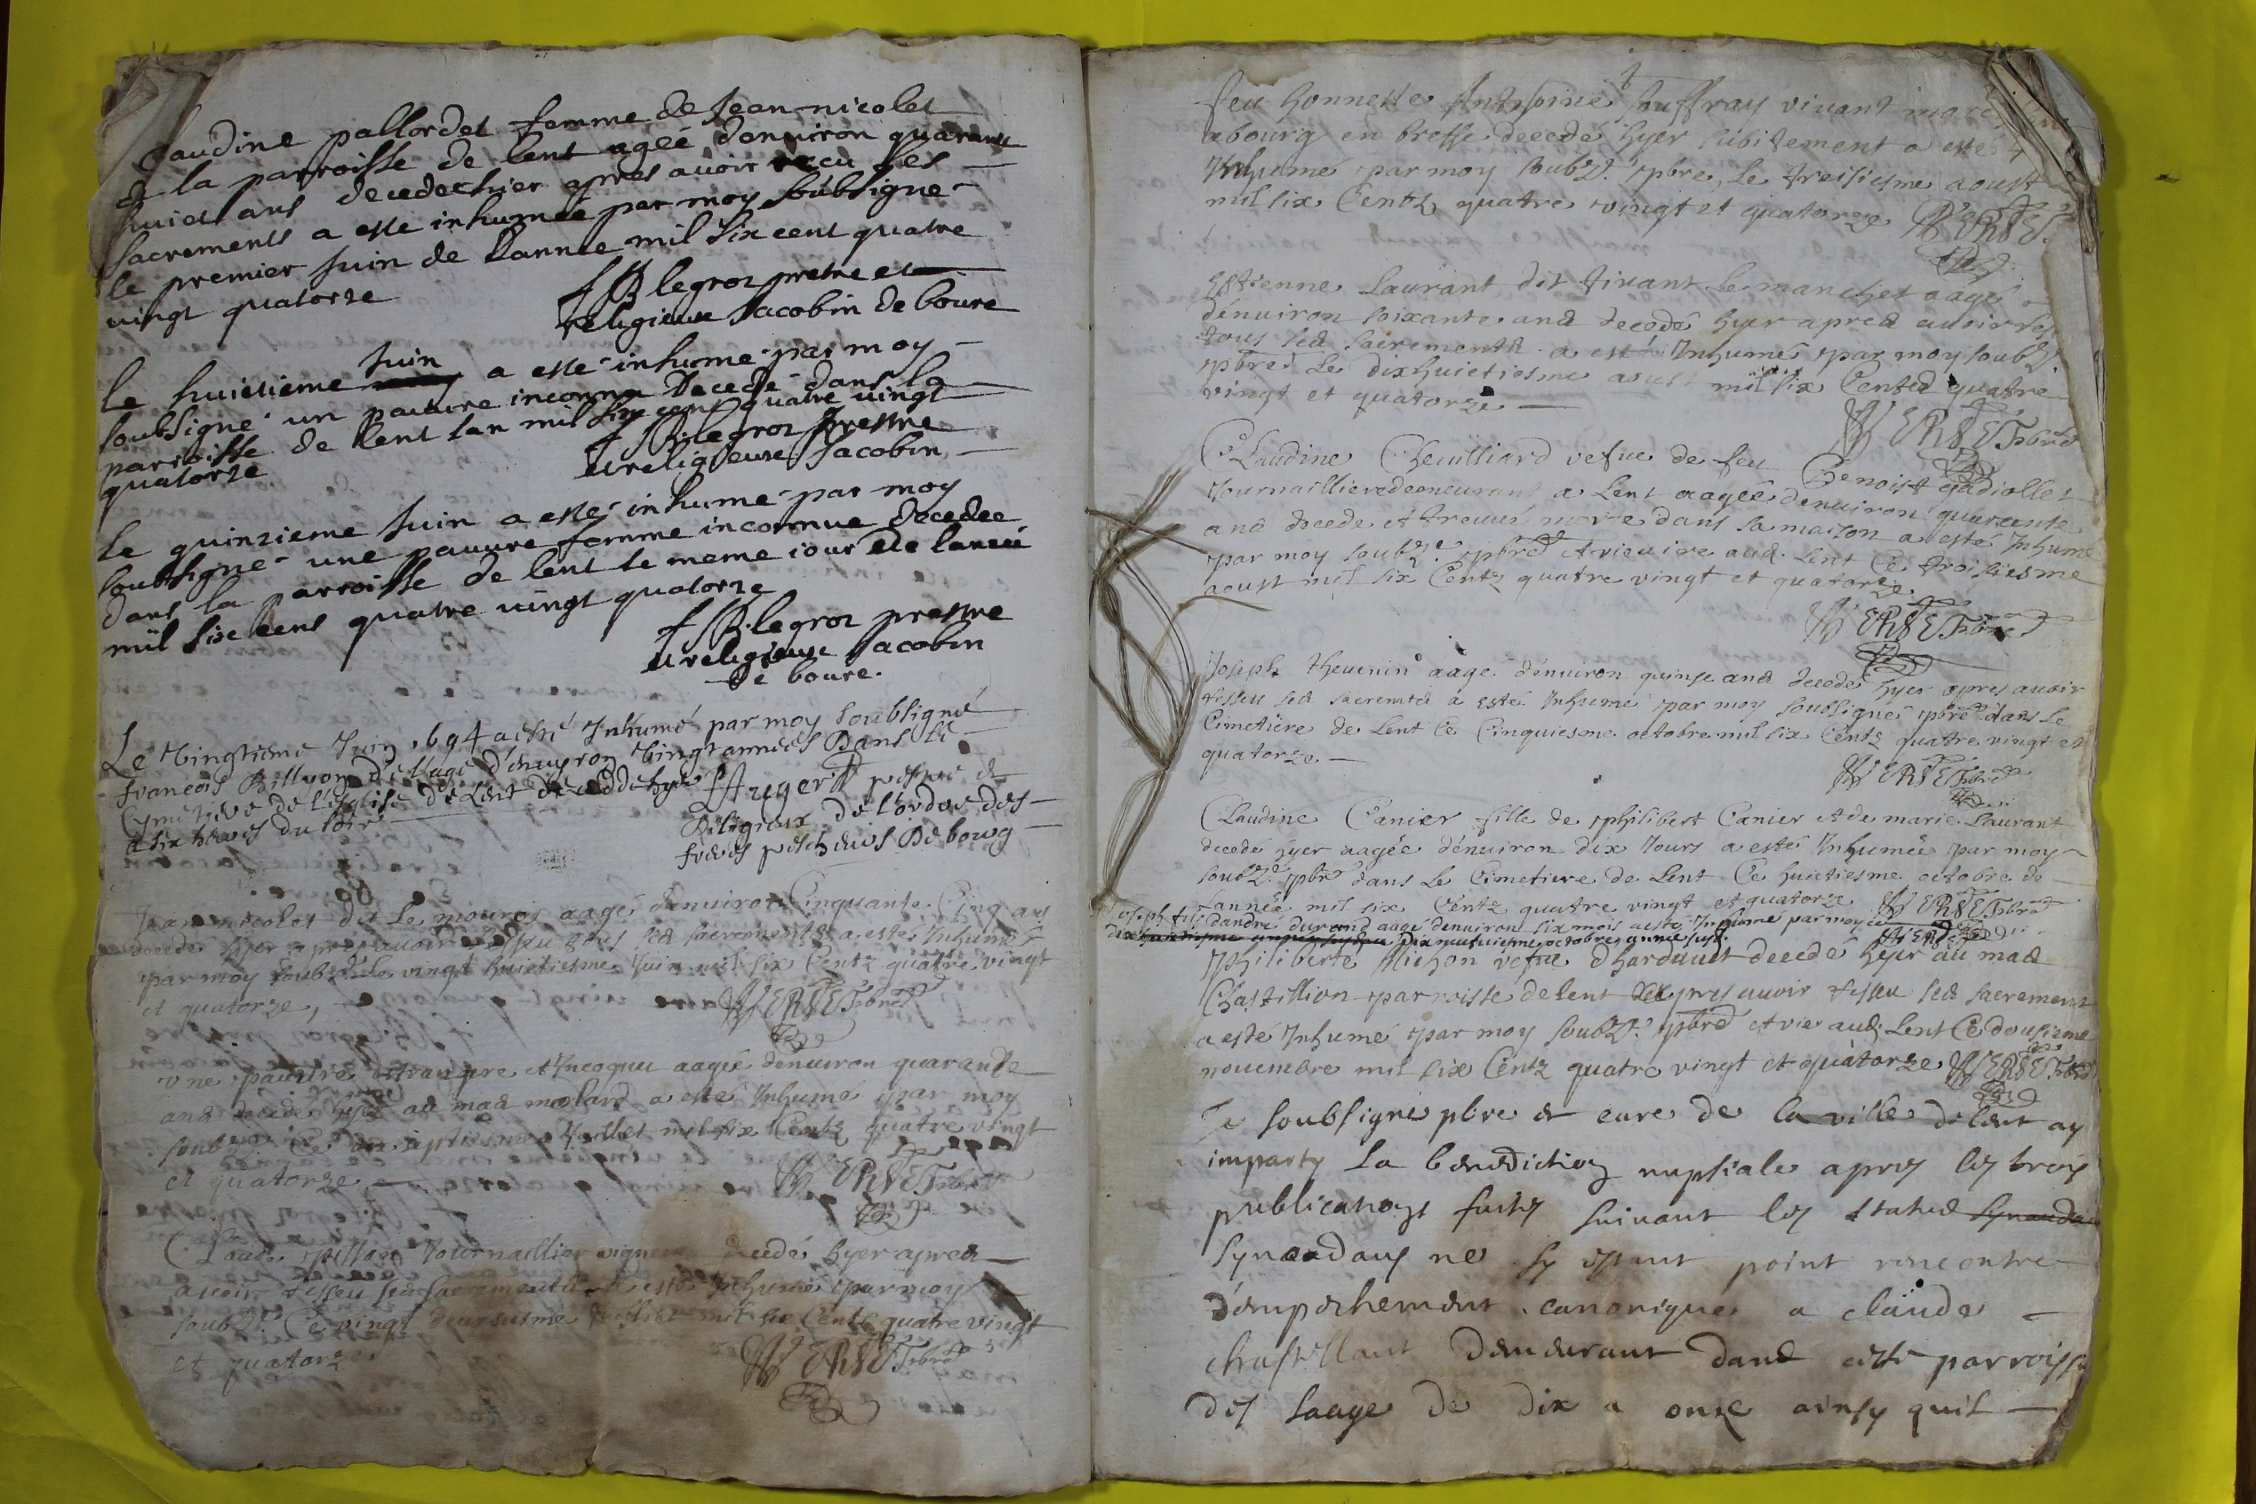 Claudine pallordet femme de Jean nicolet
de la parroisse de lent ageé denuiron quarante
huict ans decedee hier apres auoir recu ses
sacrements a este inhumée par moy soubsigne
le premier Juin de lannee mil six cent quatre
vingt quatorze
f B legros prestre et
religieux Jacobin de boure
Juin
le huictieme a esté inhumé par moy
soubsigné un pauure inconnu decedé dans la
parroisse de lent lan mil six cent quatre vingt
quatorze
f B legros prestre
et religieux Jacobin
le quinzieme Juin a esté inhumé par moy
soubsigné une pauure femme inconnue decedee
dans la parroisse de lent le meme iour de lanneé
mil six cens quatre vingt quatorze
f B. legros prestre
et religieux Jacobin
de boure.
Le Vingtieme Juin 1694 a esté Inhumé par moy soubsigné
francois Billyon de l'age d'enuyron Vingt années Dans le
Cymetiere de l'eglise de Lent decedde hyer
a six heures du soir.
Religieux de l'ordre des
freres prescheurs De bourg
Jean nicolet dit Le aagé denuiron Cinquante Cinq ans
decedé hyer apres auoir tous sea sacrementa a este Inhumé
par moy soubz.é Le vingt huictiesme Juin mil six Centz quatre vingt
et quatorze,
VERSET pbre
Vne pauure estrangere et Incognu aagée denuiron quarante
ans decedé hyer au mas molard a esté Inhumé par moy
soubz Ce septiesme Juillet mil six Centz quatre vingt
et quatorze
VERSET pbre
Claude Journaillier vigneron decedé hyer aprea
auoir sea sacrementa a esté Inhumé par moy
soubz.é Ce vingt deuxiesme Juillet mil six Centz quatre vingt
et quatorze
VERSET pbre
feu honneste Anthoine Jouffray viuant
a bourg en bresse decedé hyer subitement a esté
Inhumé par moy soubz.é pbre, Le treisiesme aoust
mil six Centz quatre vingt et quatorze VERSET
Estienne Laurant dit tiuant le manchet aagé
dénuiron soixante ana decedé hyer aprea auoir
tous sea sacrementa a esté Inhumé par moy soubz.é
pbre Le dixhuictiesme aoust mil six Centz quatre
vingt et quatorze
VERSET pbre
Claudine Cheuilliard vefue de feu Benoist gadiollet
Journailliere demeurant a Lent aagée denuiron quarente
ana decede et treuué morte dans sa maison a esté Inhumé
par moy soubz.é pbre et vicaire aud. Lent Ce troisiesme
aoust mil six Centz quatre vingt et quatorze
VERSET pbre
Joseph theuenin aagé dénuiron quinse ana decedé hyer apres auoir
sea sacremta a esté Inhumé par moy soubsigné pbre dans Le
Cimetiere de Lent Ce Cinquiesme octobre mil six Centz quatre vingt et
quatorze
VERSET pbre
Claudine Canier fille de philibert Canier et de marie Laurant
decedé hyer aagée dénuiron dix Jours a esté Inhumée par moy
soubz.é pbre dans Le Cimetiere de Lent Ce huictiesme octobre de
Lannée mil six Centz quatre vingt et quatorze VERSET pbre
Joseph fils dandré durand aagé denuiron six mois a esté Inhumé par moy ce
dix neufuiesme octobre année susd. VERSET
philiberte Michon vefue decedé hyer au maa
Chastillion parroisse de lent apres auoir sea sacrement
a esté Inhumé par moy soubz.é pbre et vic aud. Lent Ce dousieme
nouembre mil six Centz quatre vingt et quatorze VERSET pbre
Je soubsigné pbre et curé de la ville de lent ay
imparty La benediction nuptiale apres les trois
publications faites suiuant les statud
synaudaus ne sy estant point rencontre
d'empeschement canonique a claude
chastellant demeurant dans ceste parroisse
des laage de dix a onze ainsy quil